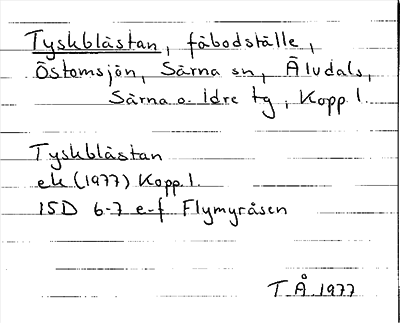 Tyskblästan, fäbodställe,
Östomsjön, Särna sn, Älvdals,
Särna o. Idre tg, Kopp. l.
Tyskblästan
ek (1977) Kopp. l.
15D 6-7 e-f Flymyråsen
T. Å. 1977